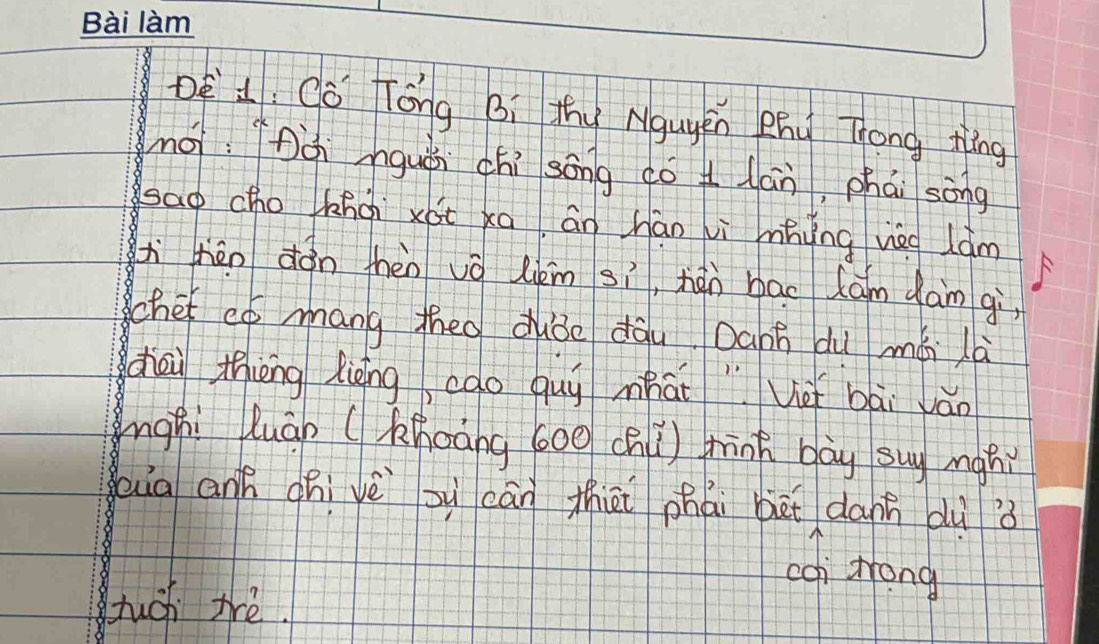 Bài làm
Đề 1: Cố Tổng Bí thư Nguyễn Phú Trọng từng
nói: "Đời người chỉ sống có 1 lần, phải sống
sao cho khỏi xót xa, ân hận vì những việc làm
ti tiện đớn hèn vô liêm sỉ, tiền bạc lắm làm gì,
chết có mang theo được đâu. Danh dự mới là
điều thiêng liêng, cao quý nhất". Viết bài văn
nghị luận (khoảng 600 chữ) trình bày suy nghĩ
của anh chị về sự cần thiết phải biết danh dự ở
coi trọng
tuổi trẻ.